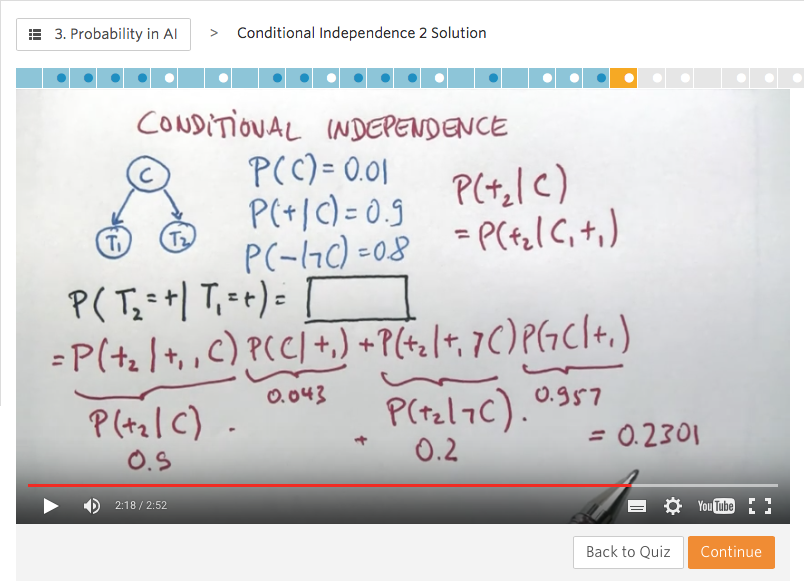 3. Probability in AI > Conditional Independence 2 Solution
CONDITIONAL INDEPENDENCE
C
T₁ T₂
P(C) = 0.01
P(+|C) = 0.9
P(-|¬C) = 0.8
P(+₂|C)
= P(+₂|C,+₁)
P(T₂=+|T₁=+) =
= P(+₂|+₁,C) P(C|+₁) + P(+₂|+₁ ¬C) P(¬C|+₁)
0.043 0.957
P(+₂|C) . + P(+₂|¬C) .
0.9 0.2 = 0.2301
2:18 / 2:52 YouTube
Back to Quiz Continue